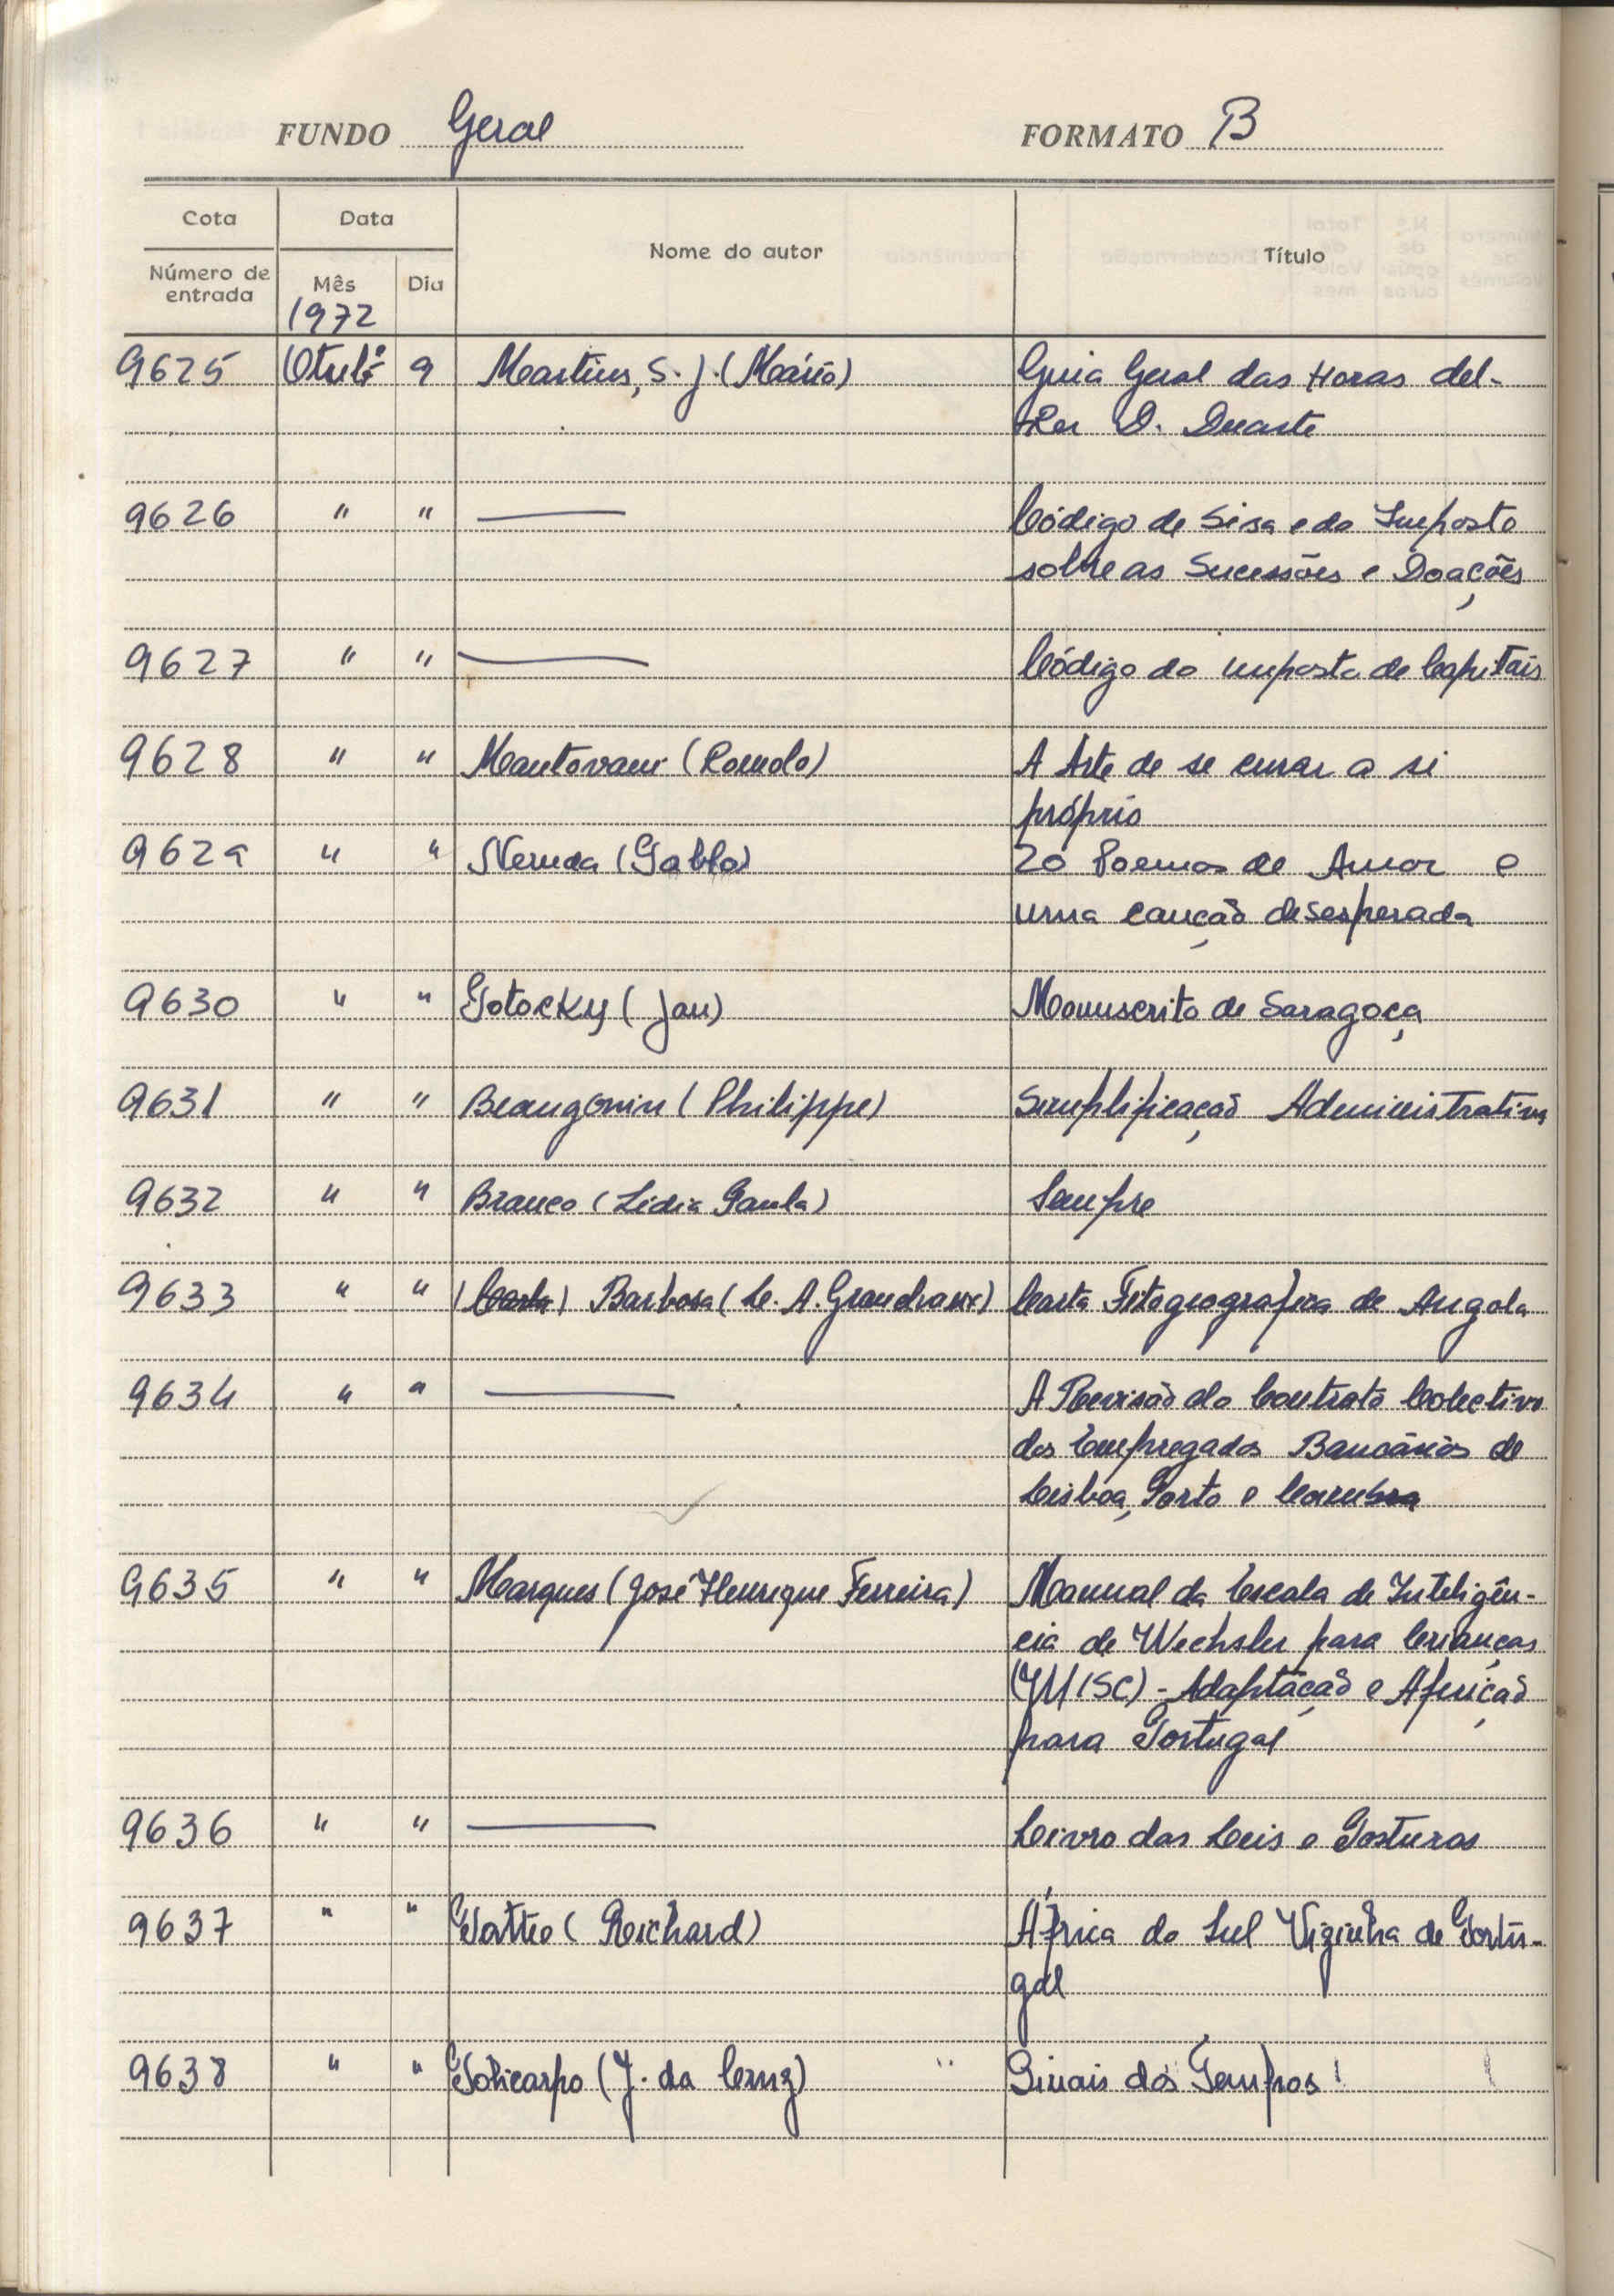 FUNDO Geral FORMATO B
Cota Data Nome do autor Título
Número de entrada Mês Dia
1972
9625 Otubº 9 Martins, S. J. (Mário) Guia Geral das Horas del-
Rei D. Duarte
9626 " " — Código de Sisa e do Imposto
sobre as Sucessões e Doações
9627 " " — Código do imposto de Capitais
9628 " " Mantovani (Romolo) A Arte de se curar a si
próprio
9629 " " Neruda (Pablo) 20 Poemas de Amor e
uma canção desesperada
9630 " " Potocky (Jan) Manuscrito de Saragoça
9631 " " Beaugonin (Philippe) Simplificação Administrativa
9632 " " Branco (Lídia Paula) Sempre
9633 " " (Carta) Barbosa (L. A. Grandvaux) Carta Fitogeografica de Angola
9634 " " — A Revisão do Contrato Colectivo
dos Empregados Bancários de
Lisboa, Porto e
9635 " " Marques (José Henrique Ferreira) Manual da Escala de Inteligên-
cia de Wechsler para Crianças
(WISC) - Adaptação e Aferição
para Portugal
9636 " " — Livro das Leis e Posturas
9637 " " Pattee (Richard) África do Sul Vizinha de Portu-
gal
9638 " " Policarpo (J. da Cruz) " Sinais dos Tempos